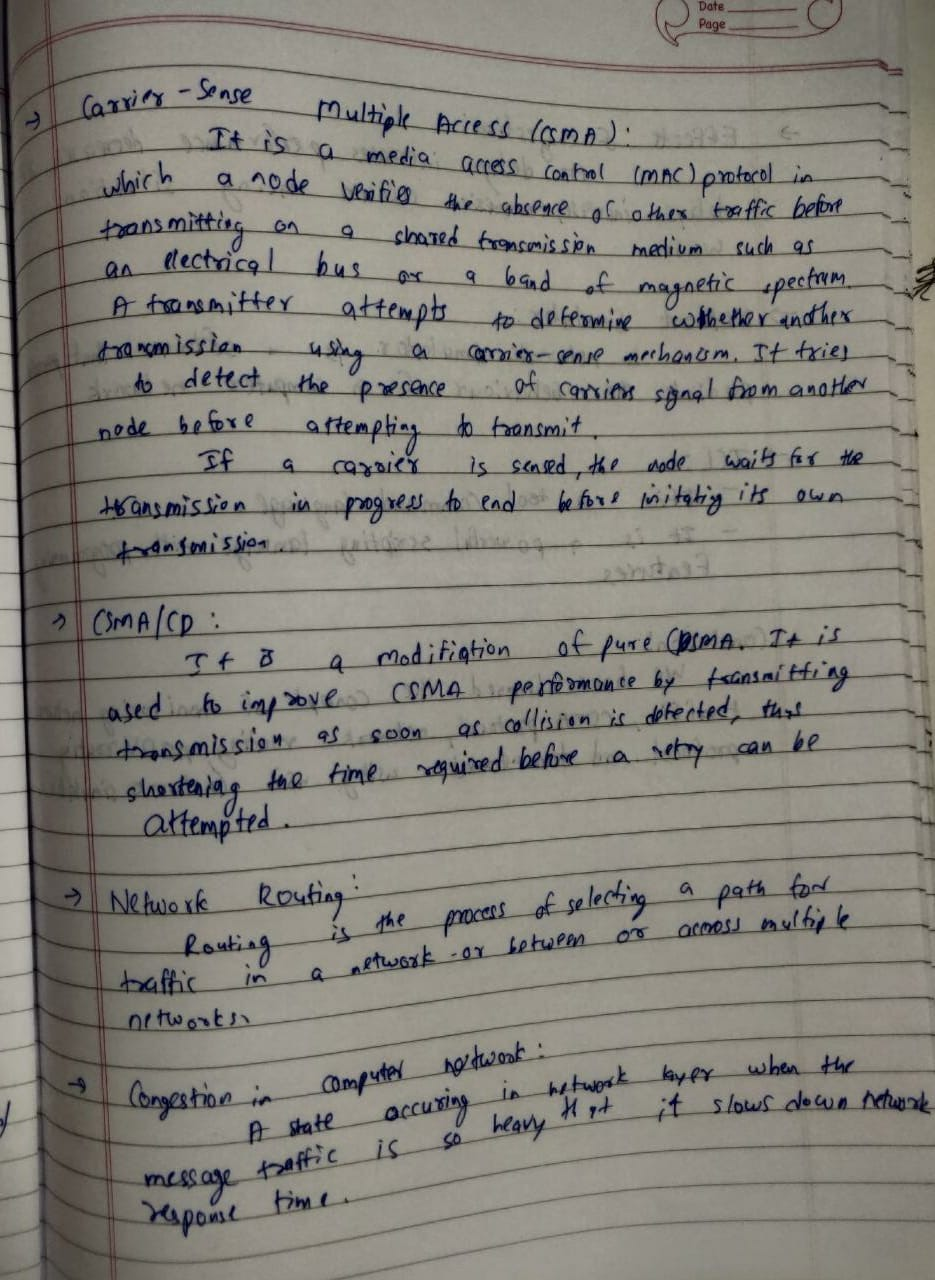 Date
Page
→ Carrier-Sense Multiple Access (CSMA):
It is a media access control (MAC) protocol in
which a node verifies the absence of other traffic before
transmitting on a shared transmission medium such as
an electrical bus or a band of magnetic spectrum.
A transmitter attempts to determine whether another
transmission using a carrier-sense mechanism. It tries
to detect the presence of carriers signal from another
node before attempting to transmit.
If a carrier is sensed, the node waits for the
transmission in progress to end before initatig its own
transmission
→ CSMA/CD:
It is a modifiation of pure CSMA. It is
ased to improve CSMA performance by transmitting
transmission as soon as collision is detected, thus
shortening the time required before a retry can be
attempted.
→ Network Routing:
Routing is the process of selecting a path for
traffic in a network -or between or across multiple
networks.
→ Congestion in computer network:
A state accuring in network layer when the
message traffic is so heavy that it slows down network
response time.